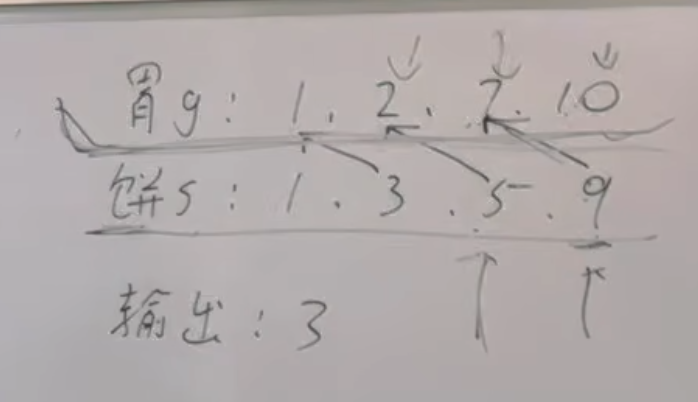 胃g: 1. 2. 7. 10
饼s: 1. 3. 5. 9
输出: 3